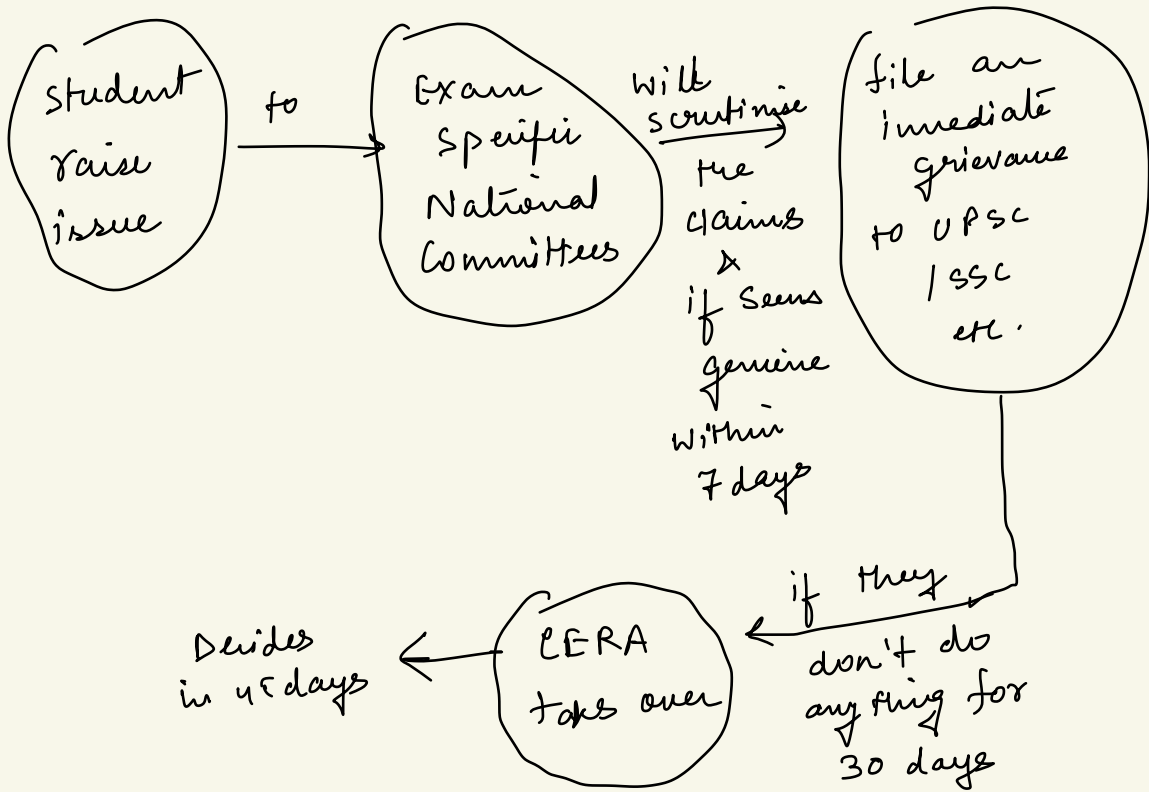 student
raise
issue
to
Exam
Specific
National
Committees
will
scrutinise
the
claims
&
if seems
genuine
within
7 days
file an
immediate
grievance
to UPSC
/ SSC
etc.
if they
don't do
anything for
30 days
CERA
takes over
Decides
in 45 days